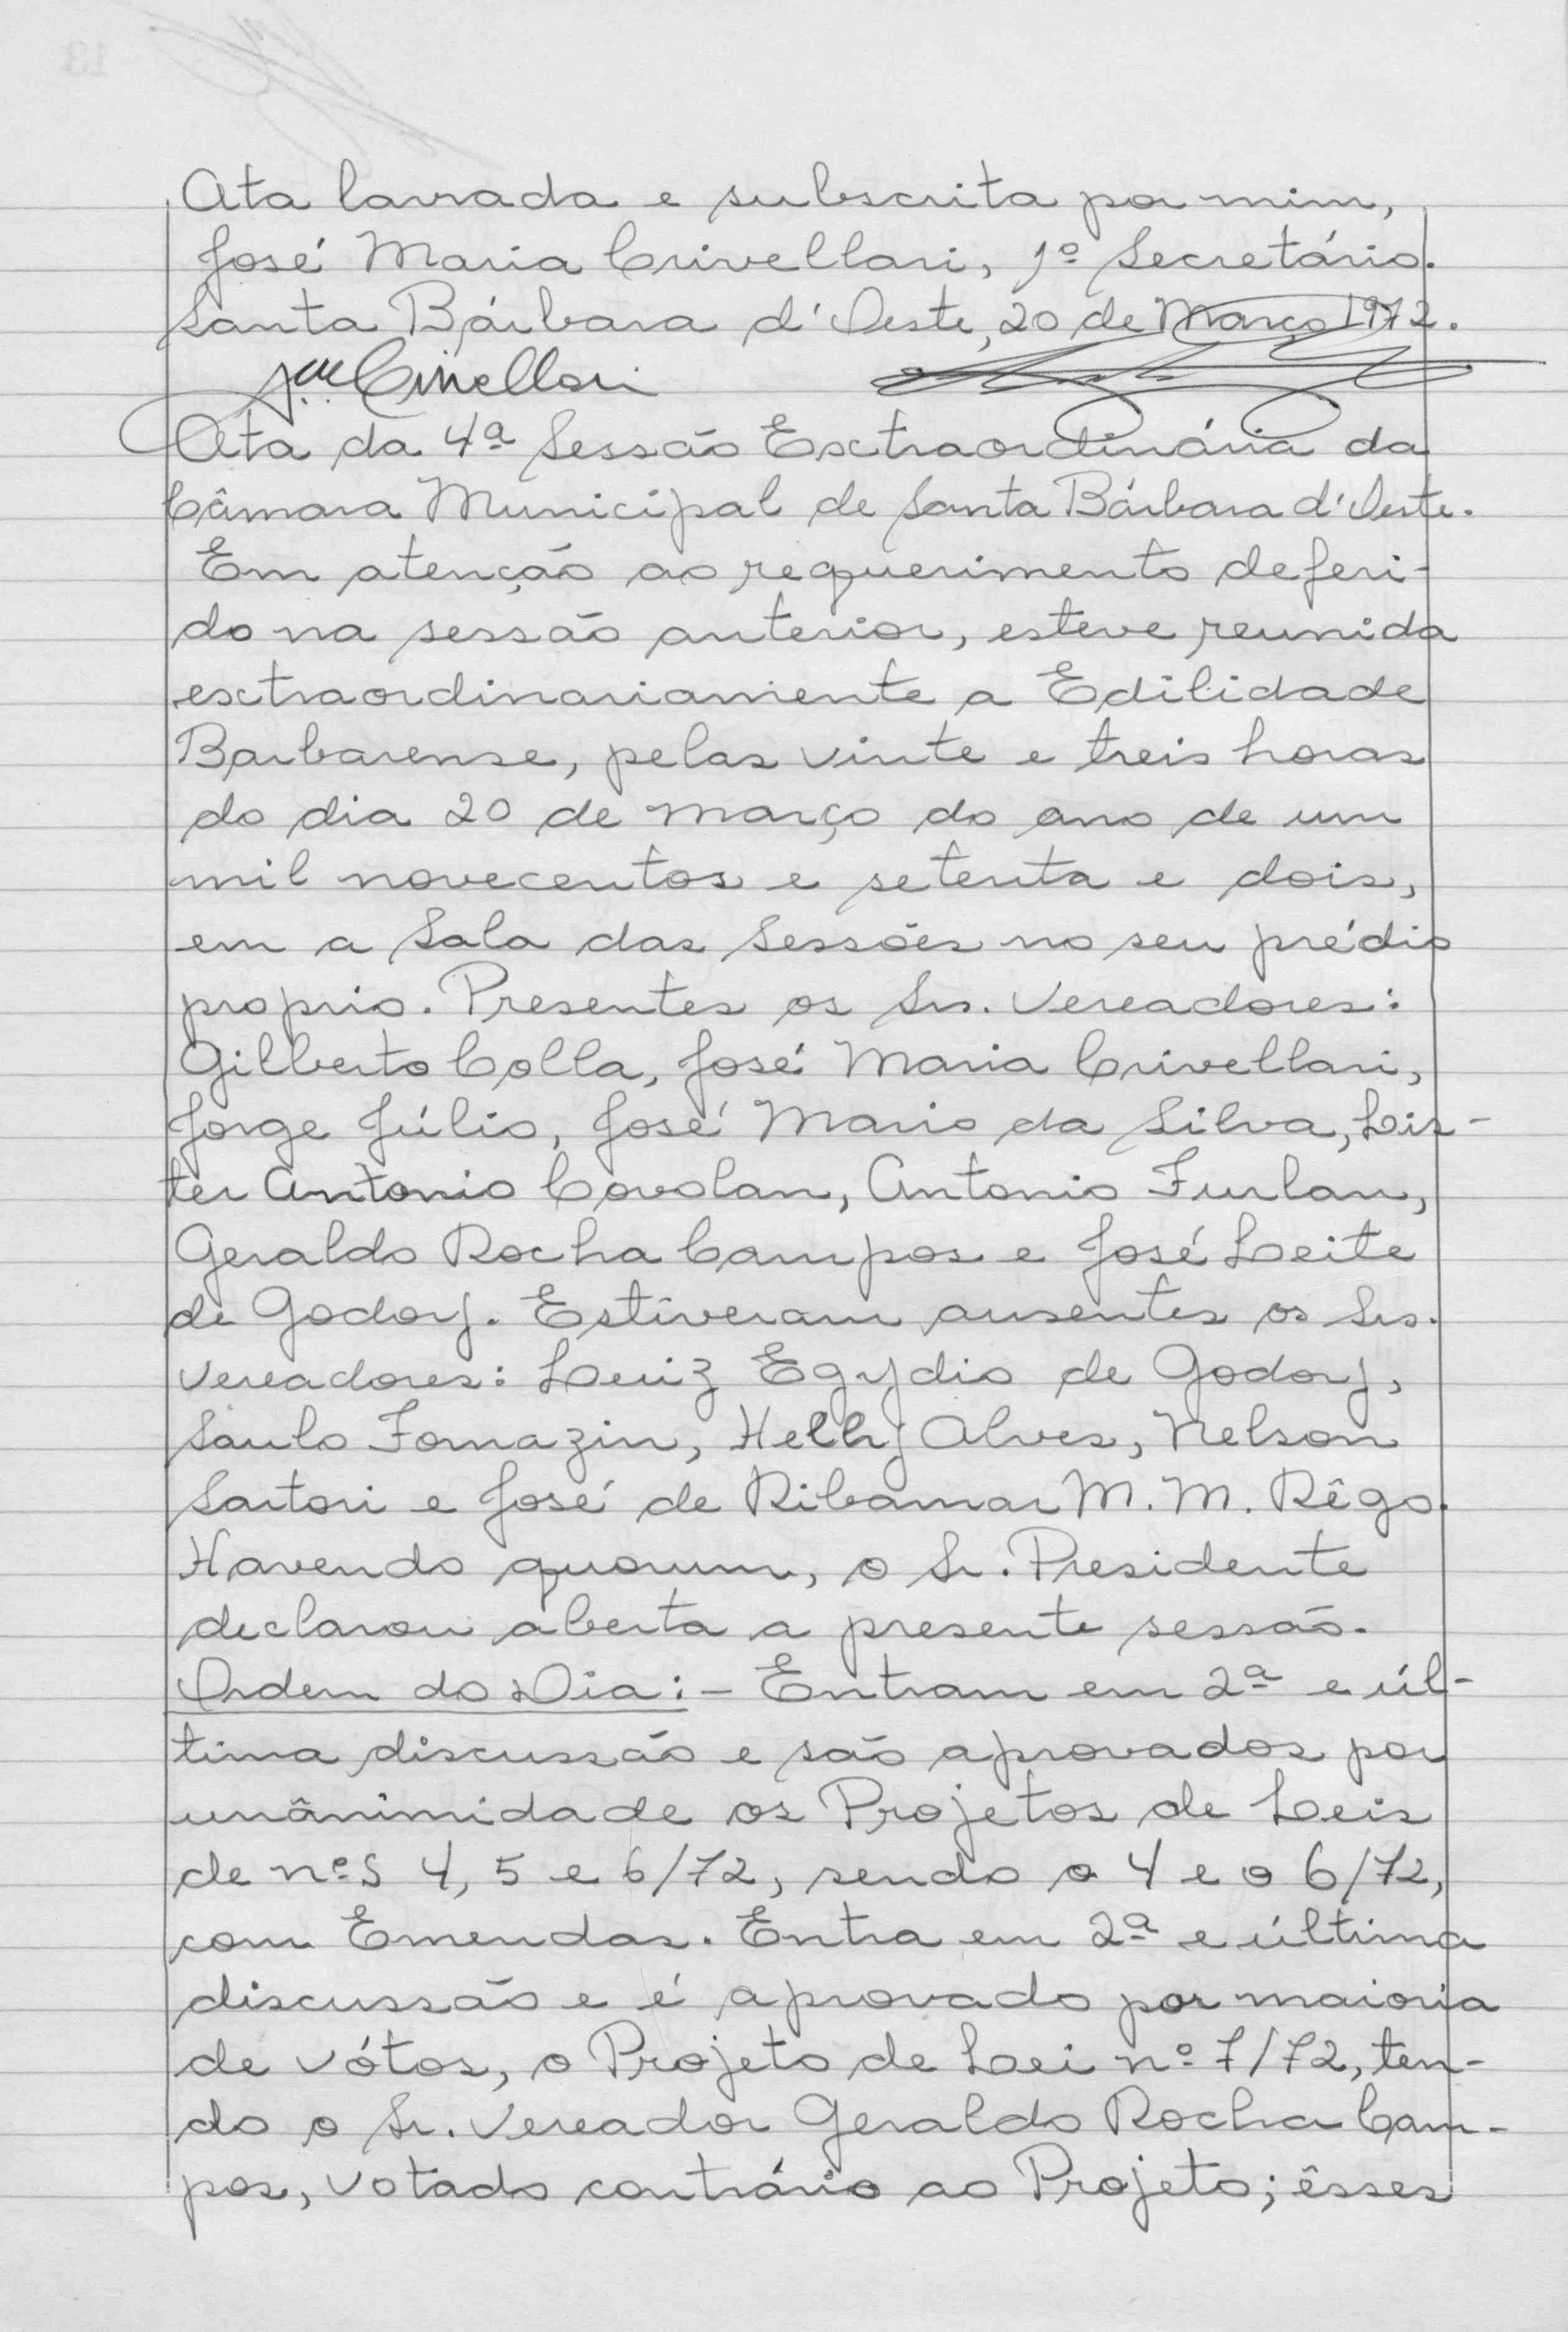 Ata lavrada e subscrita por mim,
José Maria Crivellari, 1º Secretário.
Santa Bárbara d'Oeste, 20 de Março 1972.
Crivellari
Ata da 4ª Sessão Extraordinária da
Câmara Municipal de Santa Bárbara d'Oeste.
Em atenção ao requerimento deferi-
do na sessão anterior, esteve reunida
extraordinariamente a Edilidade
Barbarense, pelas vinte e treis horas
do dia 20 de março do ano de um
mil novecentos e setenta e dois,
em a Sala das Sessões no seu prédio
proprio. Presentes os Srs. Vereadores:
Gilberto Colla, José Maria Crivellari,
Jorge Júlio, José Mario da Silva, Lis-
ter Antonio Covolan, Antonio Furlan,
Geraldo Rocha Campos e José Leite
de Godoy. Estiveram ausentes os Srs.
Vereadores: Luiz Egydio de Godoy,
Saulo Fornazin, Helly Alves, Nelson
Sartori e José de Ribamar M. M. Rêgo.
Havendo quorum, o Sr. Presidente
declarou aberta a presente sessão.
Ordem do Dia:- Entram em 2ª e úl-
tima discussão e são aprovados por
unânimidade os Projetos de Leis
de nºs 4, 5 e 6/72, sendo o 4 e o 6/72,
com Emendas. Entra em 2ª e última
discussão e é aprovado por maioria
de vótos, o Projeto de Lei nº 7/72, ten-
do o Sr. Vereador Geraldo Rocha Cam-
pos, votado contrário ao Projeto; êsses